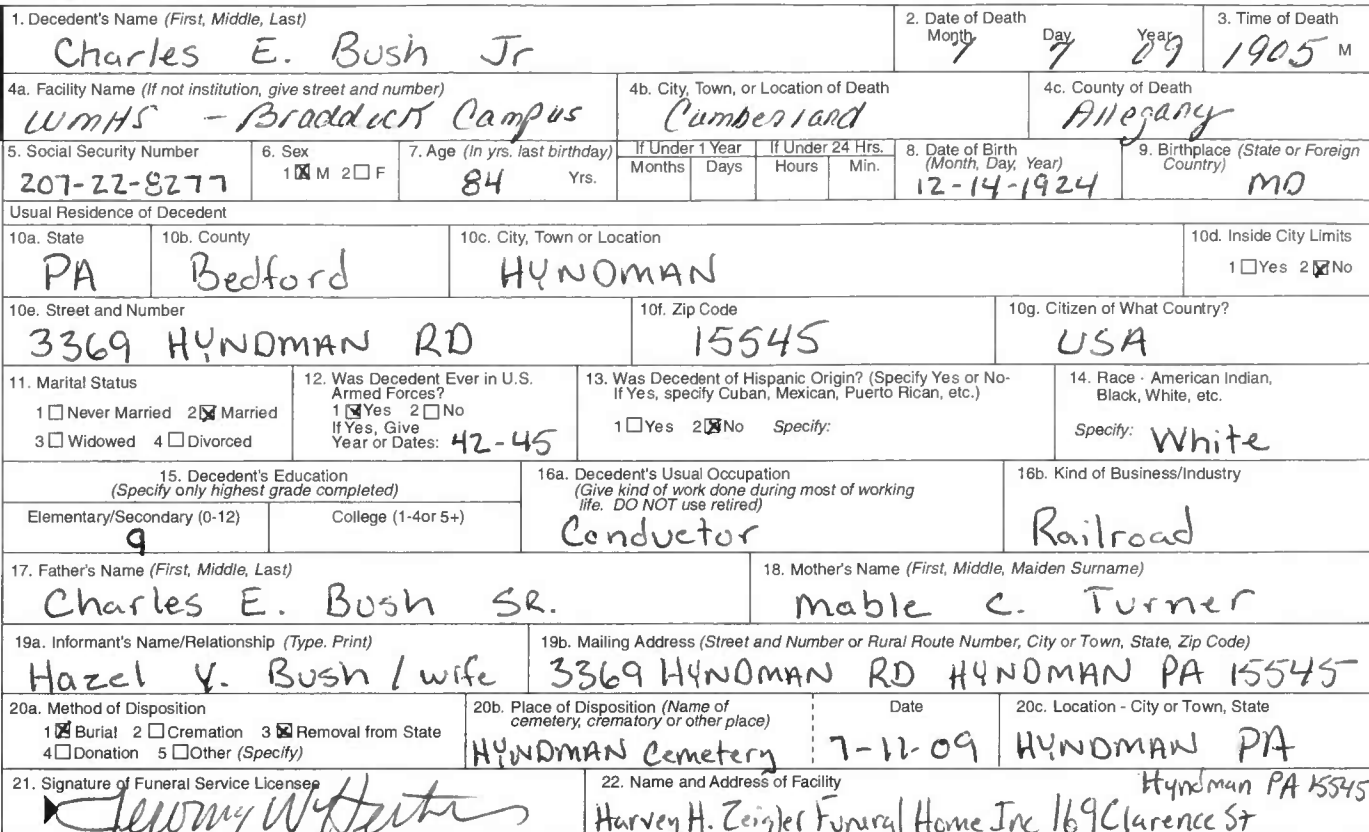 1. Decedent's Name (First, Middle, Last)
Charles E. Bush Jr
2. Date of Death
Month Day Year
7 7 09
3. Time of Death
1905 M
4a. Facility Name (If not institution, give street and number)
WMHS - Braddock Campus
4b. City, Town, or Location of Death
Cumberland
4c. County of Death
Allegany
5. Social Security Number
207-22-8277
6. Sex
1 ☒ M 2 ☐ F
7. Age (In yrs. last birthday)
84 Yrs.
If Under 1 Year
Months Days
If Under 24 Hrs.
Hours Min.
8. Date of Birth
(Month, Day, Year)
12-14-1924
9. Birthplace (State or Foreign
Country)
MD
Usual Residence of Decedent
10a. State
PA
10b. County
Bedford
10c. City, Town or Location
HYNDMAN
10d. Inside City Limits
1 ☐ Yes 2 ☒ No
10e. Street and Number
3369 HYNDMAN RD
10f. Zip Code
15545
10g. Citizen of What Country?
USA
11. Marital Status
1 ☐ Never Married 2 ☒ Married
3 ☐ Widowed 4 ☐ Divorced
12. Was Decedent Ever in U.S.
Armed Forces?
1 ☒ Yes 2 ☐ No
If Yes, Give
Year or Dates: 42-45
13. Was Decedent of Hispanic Origin? (Specify Yes or No-
If Yes, specify Cuban, Mexican, Puerto Rican, etc.)
1 ☐ Yes 2 ☒ No Specify:
14. Race - American Indian,
Black, White, etc.
Specify: White
15. Decedent's Education
(Specify only highest grade completed)
Elementary/Secondary (0-12)
9
College (1-4or 5+)
16a. Decedent's Usual Occupation
(Give kind of work done during most of working
life. DO NOT use retired)
Conductor
16b. Kind of Business/Industry
Railroad
17. Father's Name (First, Middle, Last)
Charles E. Bush SR.
18. Mother's Name (First, Middle, Maiden Surname)
Mable C. Turner
19a. Informant's Name/Relationship (Type. Print)
Hazel V. Bush / wife
19b. Mailing Address (Street and Number or Rural Route Number, City or Town, State, Zip Code)
3369 HYNDMAN RD HYNDMAN PA 15545
20a. Method of Disposition
1 ☒ Burial 2 ☐ Cremation 3 ☒ Removal from State
4 ☐ Donation 5 ☐ Other (Specify)
20b. Place of Disposition (Name of
cemetery, crematory or other place)
HYNDMAN Cemetery
Date
7-11-09
20c. Location - City or Town, State
HYNDMAN PA
21. Signature of Funeral Service Licensee
22. Name and Address of Facility
Hyndman PA 15545
Harvey H. Zeigler Funeral Home Inc 169 Clarence St